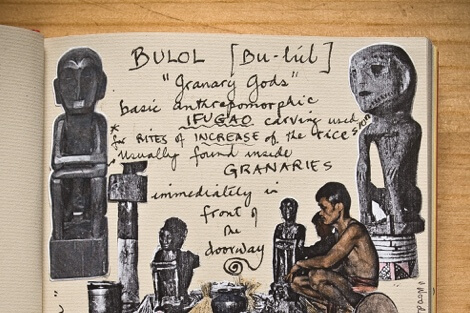 BULOL [Bu-lúl]
"Granary Gods"
basic anthropomorphic
IFUGAO carving used
* for RITES of INCREASE of the rice
Usually found inside
GRANARIES
immediately in
front of
the
doorway